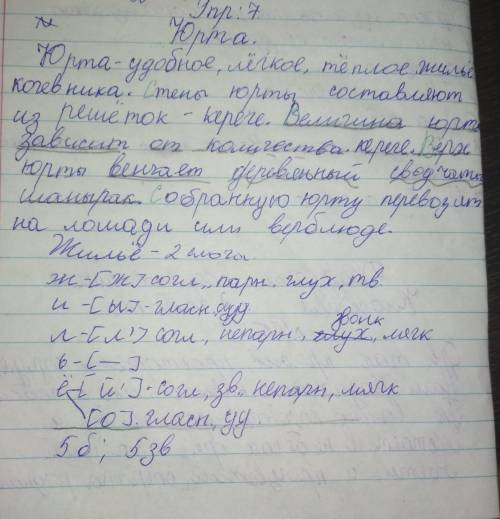 Упр: 7
Юрта.
Юрта - удобное, лёгкое, тёплое жильё
кочевника. Стены юрты составляют
из решёток - кереге. Величина юрты
зависит от количества кереге. Верх
юрты венчает деревяный сводчатый
шанырак. Собранную юрту перевозят
на лошади или верблюде.
Жильё - 2 слога.
ж - [ж] согл., парн. глух, тв.
и - [ы] - гласн, суд.
звонк
л - [л'] согл, непарн, глух, мягк
ь - [—]
ё - [й'] - согл, зв., непарн, мягк
[о]. гласн, уд.
5 б; 5 зв